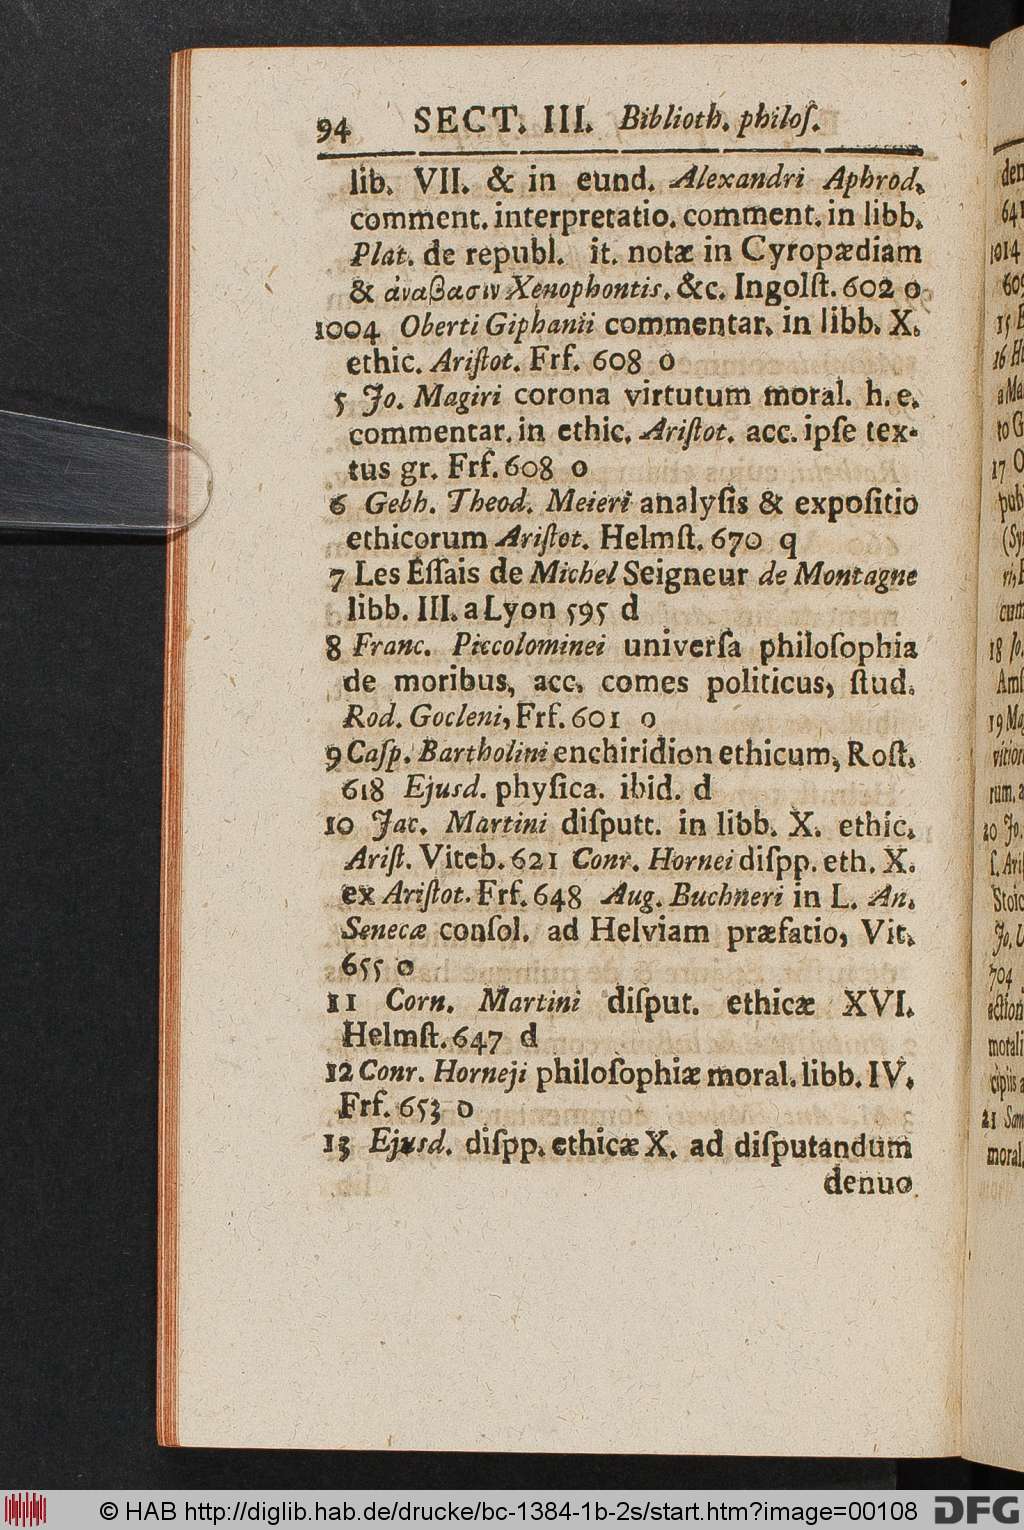 94 SECT. III. Biblioth. philoſ.
lib. VII. & in eund. Alexandri Aphrod.
comment. interpretatio. comment. in libb.
Plat. de republ. it. notæ in Cyropædiam
& ἀναβασιν Xenophontis. &c. Ingolſt. 602 o
1004 Oberti Giphanii commentar. in libb. X.
ethic. Ariſtot. Frf. 608 o
5 Jo. Magiri corona virtutum moral. h. e.
commentar. in ethic. Ariſtot. acc. ipſe tex-
tus gr. Frf. 608 o
6 Gebh. Theod. Meieri analyſis & expoſitio
ethicorum Ariſtot. Helmſt. 670 q
7 Les Eſſais de Michel Seigneur de Montagne
libb. III. a Lyon 595 d
8 Franc. Piccolominei univerſa philoſophia
de moribus, acc. comes politicus, ſtud.
Rod. Gocleni, Frf. 601 o
9 Caſp. Bartholini enchiridion ethicum, Roſt.
618 Ejusd. phyſica. ibid. d
10 Jac. Martini diſputt. in libb. X. ethic.
Ariſt. Viteb. 621 Conr. Hornei diſpp. eth. X.
ex Ariſtot. Frf. 648 Aug. Buchneri in L. An.
Senecæ conſol. ad Helviam præfatio, Vit.
655 o
11 Corn. Martini diſput. ethicæ XVI.
Helmſt. 647 d
12 Conr. Horneji philoſophiæ moral. libb. IV.
Frf. 653 o
13 Ejusd. diſpp. ethicæ X. ad diſputandum
denuo
den
641
1014
609
15
16
17 O
pub
(Sy
cum
18 Jo.
Amſ
19
vition
rum. a
20 Jo.
ſ. Ari
Stoic
Jo.
704
action
morali
cipiis a
21 Sam
moral.
© HAB http://diglib.hab.de/drucke/bc-1384-1b-2s/start.htm?image=00108
DFG